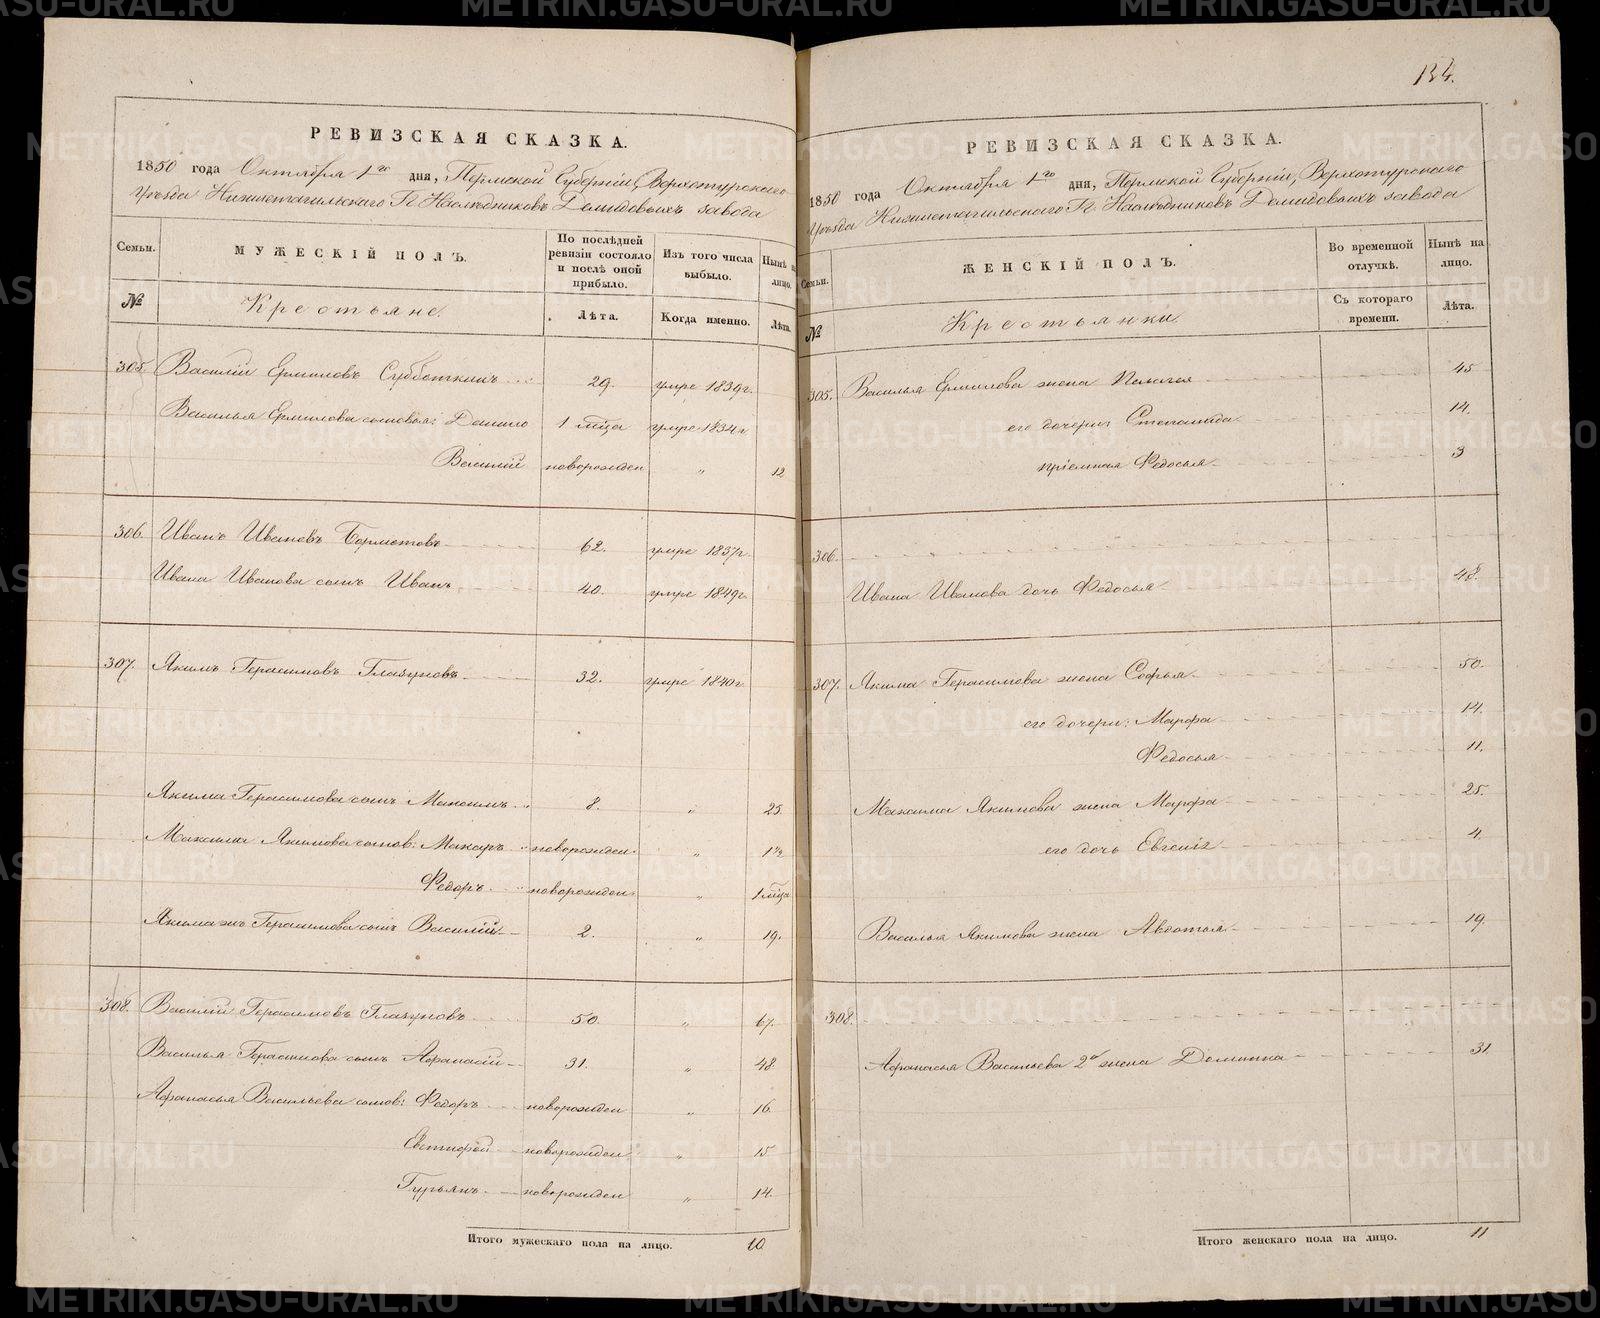 134.
РЕВИЗСКАЯ СКАЗКА.
1850 года Октября 1го дня, Пермской Губерніи, Верхотурскаго
Уѣзда Нижнетагильскаго Гг. Наслѣдниковъ Демидовыхъ завода
Семьи.
МУЖЕСКІЙ ПОЛЪ.
По послѣдней ревизіи состояло и послѣ оной прибыло.
Изъ того числа выбыло.
Нынѣ на лицо.
№
Крестьяне.
Лѣта.
Когда именно.
Лѣта.
305. Василій Ермиловъ Субботкинъ 29. умре 1839г.
Василья Ермилова сыновья: Данило 1 мѣца умре 1834г
Василій новорожден „ 12
306. Иванъ Ивановъ Бормотовъ 62. умре 1837г
Ивана Иванова сынъ Иванъ 40. умре 1849г.
307. Якимъ Герасимовъ Глазуновъ 32. умре 1840г
Якима Герасимова сынъ Максимъ 8. „ 25.
Максима Якимова сынов: Макаръ новорожден „ 1½
Федоръ новорожден „ 1 мѣца
Якима жъ Герасимова сынъ Василій 2. „ 19.
308. Василій Герасимовъ Глазуновъ 50 „ 67.
Василья Герасимова сынъ Афанасій 31. „ 48.
Афанасья Васильева сынов: Федоръ новорожден „ 16
Евстифей новорожден „ 15
Гурьянъ новорожден „ 14.
Итого мужескаго пола на лицо. 10
РЕВИЗСКАЯ СКАЗКА.
1850 года Октября 1го дня, Пермской Губерніи, Верхотурскаго
Уѣзда Нижнетагильскаго Гг. Наслѣдниковъ Демидовыхъ завода
Семьи.
ЖЕНСКІЙ ПОЛЪ.
Во временной отлучкѣ.
Нынѣ на лицо.
№
Крестьянки
Съ котораго времени.
Лѣта.
305. Василья Ермилова жена Пелагея 45
его дочери Степанида 14.
пріемная Федосья 3
306.
Ивана Иванова дочь Федосья 48.
307. Якима Герасимова жена Софья 50.
его дочери: Марфа 14.
Федосья 11.
Максима Якимова жена Марфа 25.
его дочь Евгенія 4.
Василья Якимова жена Авдотья 19
308.
Афанасья Васильева 2я жена Домника 31.
Итого женскаго пола на лицо. 11
METRIKI.GASO-URAL.RU